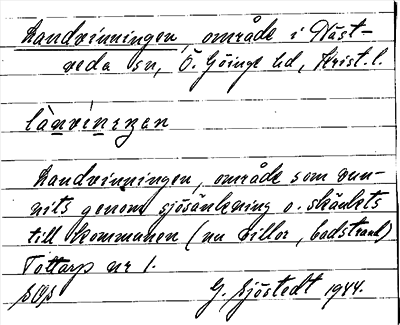 Landvinningen, område i Häst-
veda sn, Ö. Göinge hd, Krist. l.
lànvíniŋan
Landvinningen, område som vun-
nits genom sjösänkning o. skänkts
till kommunen (nu villor, badstrand)
Tottarp nr 1.
G. Sjöstedt 1944.